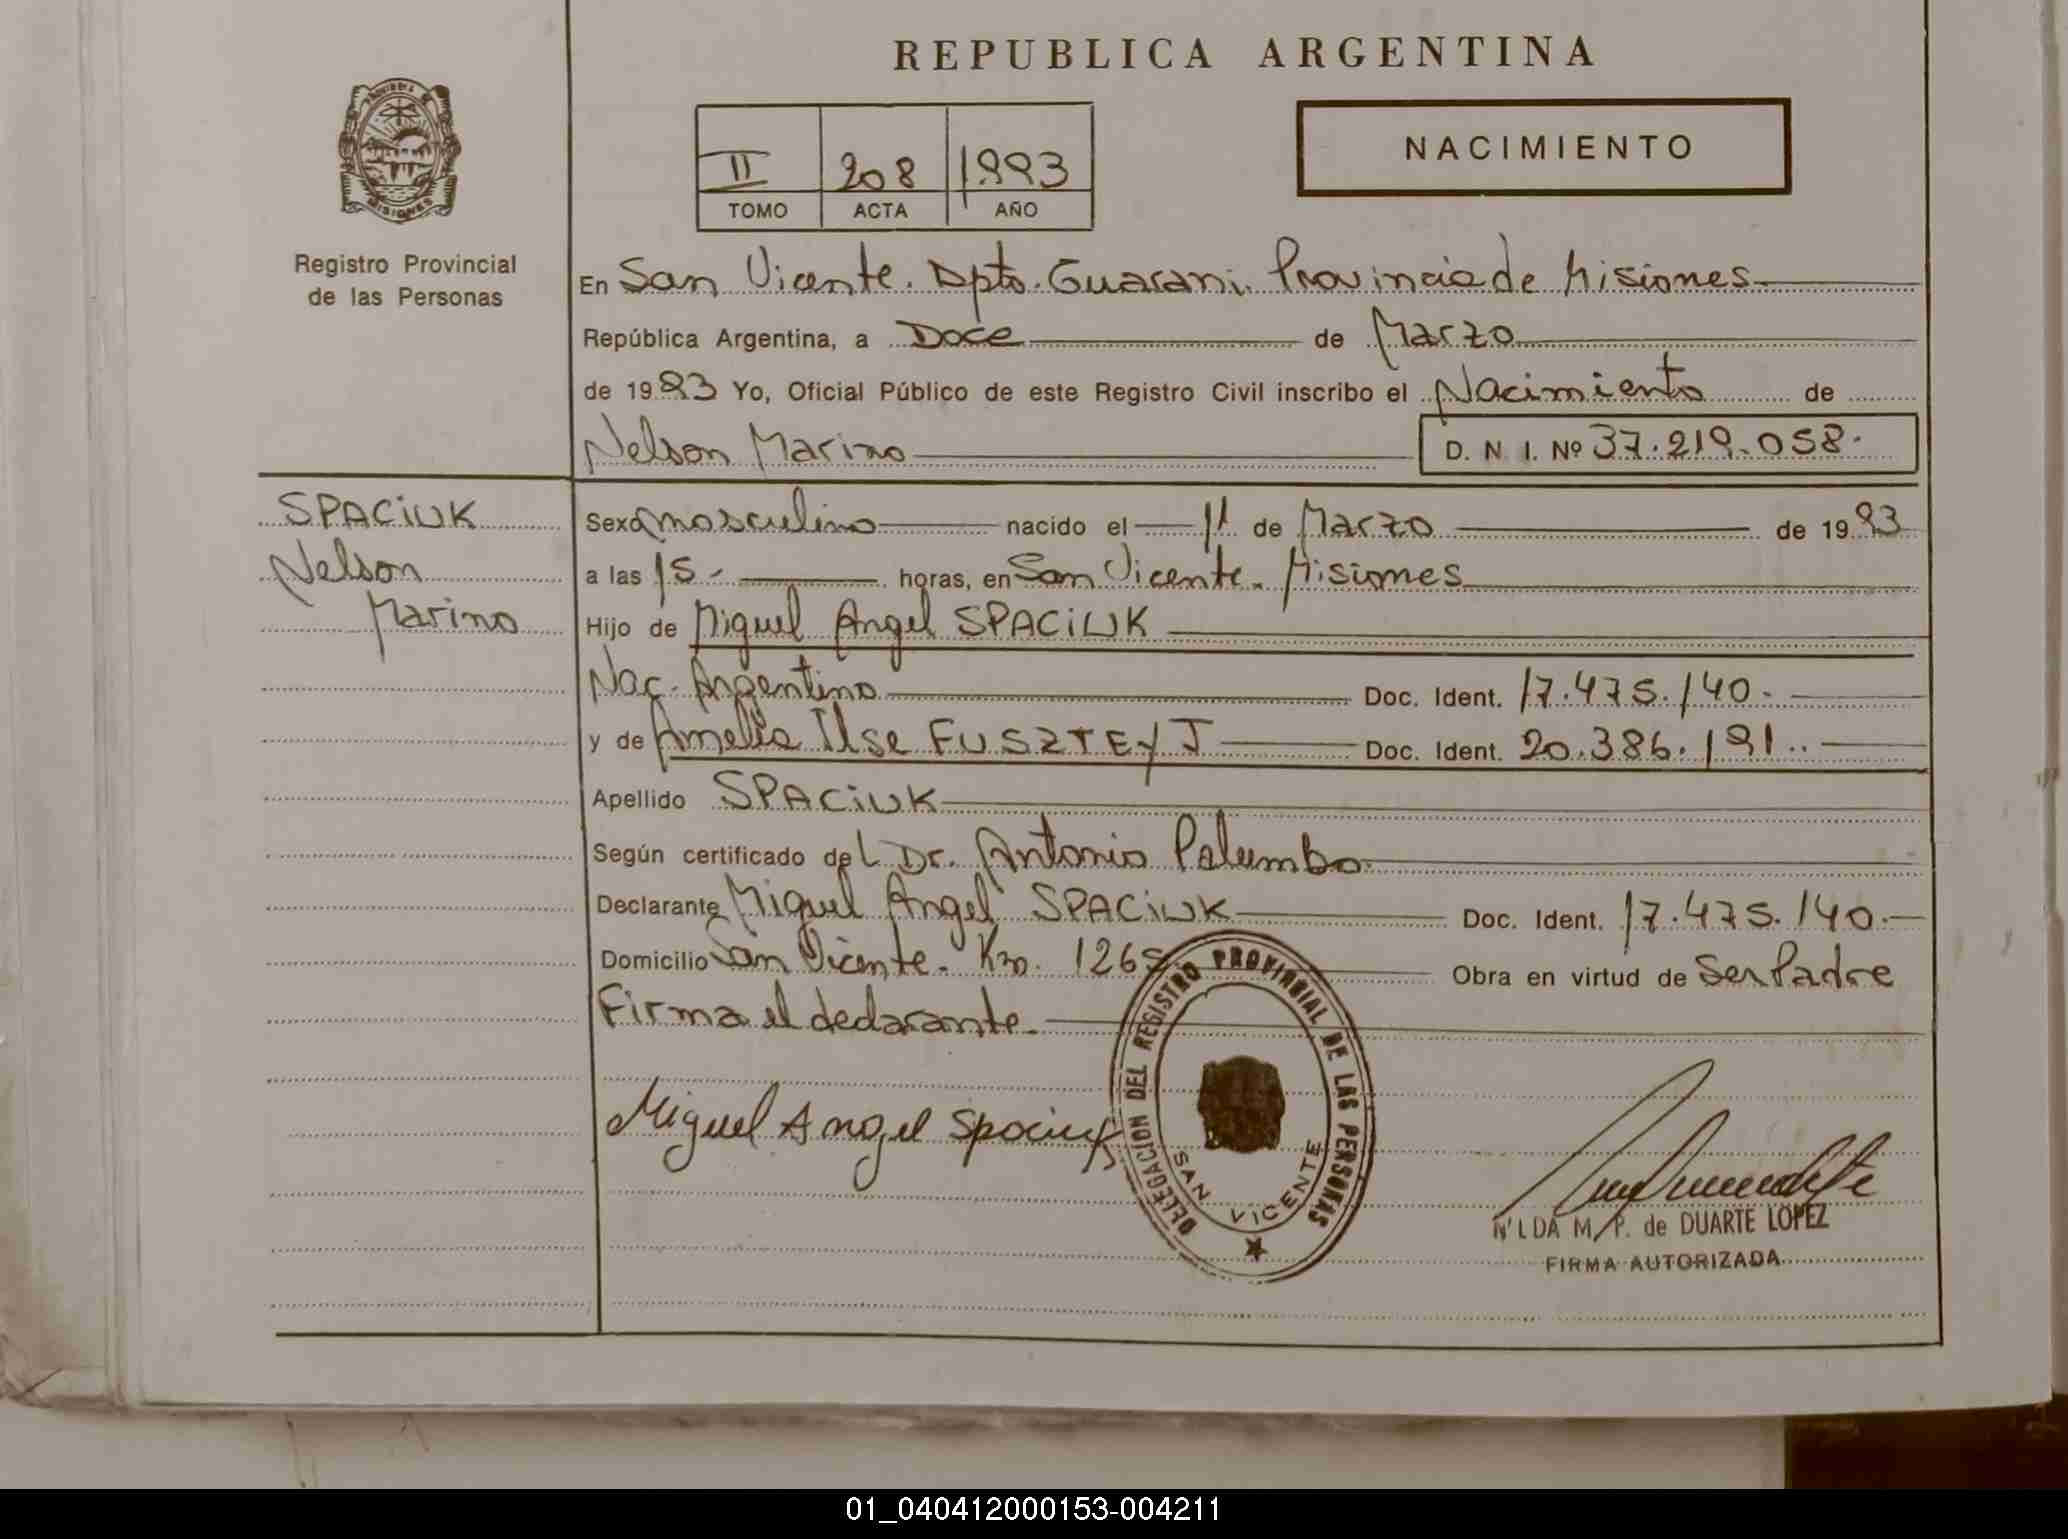 REPUBLICA ARGENTINA
PROVINCIA DE
MISIONES
Registro Provincial
de las Personas
II 208 1993
TOMO ACTA AÑO
NACIMIENTO
En San Vicente. Dpto. Guarani. Provincia de Misiones
República Argentina, a Doce de Marzo
de 1993 Yo, Oficial Público de este Registro Civil inscribo el Nacimiento de
Nelson Marino D. N. I. Nº 37.219.058.
SPACiUK
Nelson
Marino
Sexo masculino nacido el 11 de Marzo de 1993
a las 15- horas, en San Vicente. Misiones
Hijo de Miguel Angel SPACiUK
Nac. Argentino Doc. Ident. 17.475.140.
y de Amelia Ilse FUSZTEyJ Doc. Ident. 20.386.191..
Apellido SPACiUK
Según certificado del Dr. Antonio Palumbo.
Declarante Miguel Angel SPACiUK Doc. Ident. 17.475.140.
Domicilio San Vicente. Km. 1265 Obra en virtud de Ser Padre
Firma el declarante.
Miguel Angel Spaciuk
DELEGACION DEL REGISTRO PROVINCIAL DE LAS PERSONAS
SAN VICENTE
N'LDA M. P. de DUARTE LOPEZ
FIRMA AUTORIZADA
01_040412000153-004211